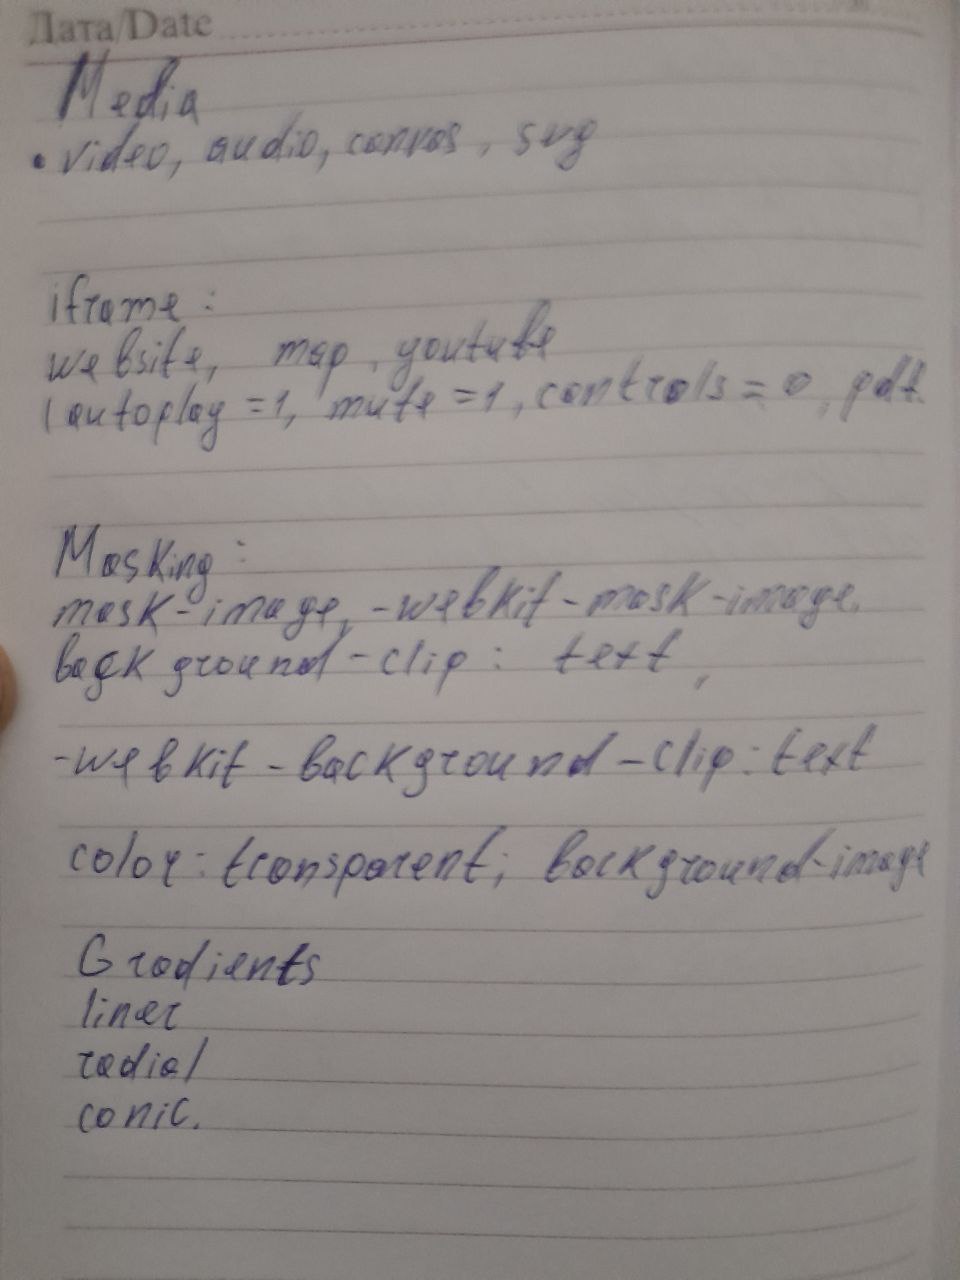 Дата/Date
Media
• video, audio, canvas, svg
iframe:
website, map, youtube
(autoplay=1, mute=1, controls=0, pdf.
Masking:
mask-image, -webkit-mask-image,
background-clip: text,
-webkit-background-clip: text
color: transparent; background-image
Gradients
liner
radial
conic.